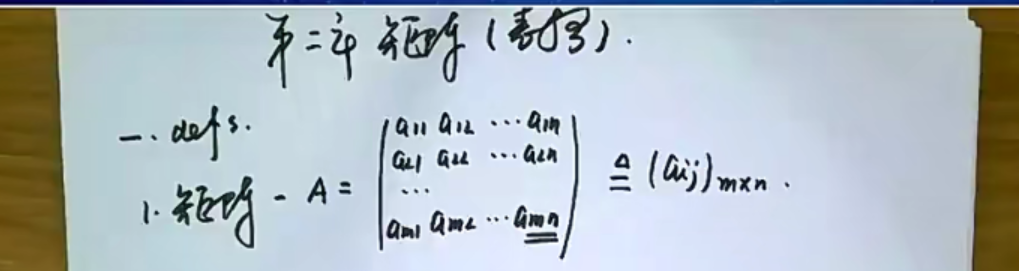 第二章 矩阵(表格).
一. defs.
1. 矩阵 - A = (a11 a12 … a1n
a21 a22 … a2n
…
am1 am2 … amn) ≜ (aij)m×n .